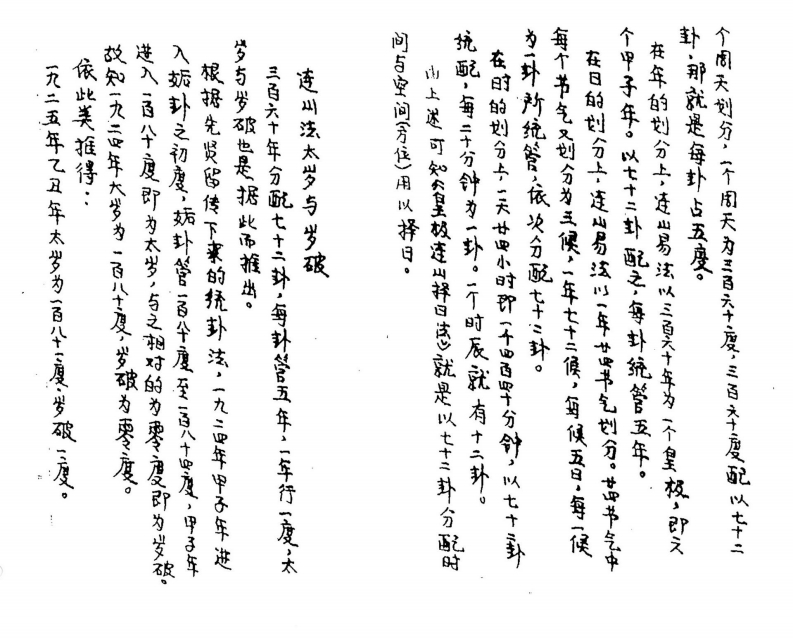 个周天划分，一个周天为三百六十度，三百六十度配以七十二
卦，那就是每卦占五度。
在年的划分上，连山易法以三百六十年为一个皇极，即六
个甲子年。以七十二卦配之，每卦统管五年。
在日的划分上，连山易法以一年廿四节气划分。廿四节气中
每个节气又划分为三候，一年七十二候，每候五日，每一候
为一卦所统管，依次分配七十二卦。
在时的划分上，一天廿四小时即一千四百四十分钟，以七十二卦
统配，每二十分钟为一卦。一个时辰就有十二卦。
由上述可知《皇极连山择日法》就是以七十二卦分配时
间与空间（方位）用以择日。
连山法太岁与岁破
三百六十年分配七十二卦，每卦管五年，一年行一度，太
岁与岁破也是据此而推出。
根据先贤留传下来的统卦法，一九二四年甲子年进
入姤卦之初度，姤卦管一百八十度至一百八十四度，甲子年
进入一百八十度即为太岁，与之相对的为零度即为岁破。
故知一九二四年太岁为一百八十度，岁破为零度。
依此类推得：
一九二五年乙丑年太岁为一百八十一度，岁破一度。